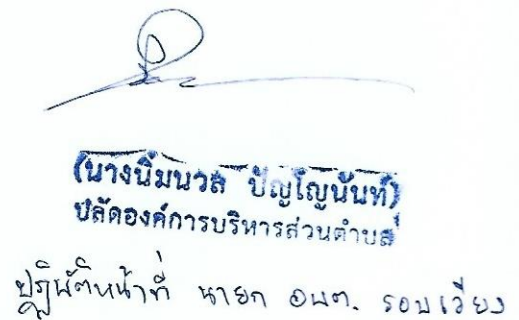 (นางนิ่มนวล ปัญโญนันท์)
ปลัดองค์การบริหารส่วนตำบล
ปฏิบัติหน้าที่ นายก อบต. รอบเวียง